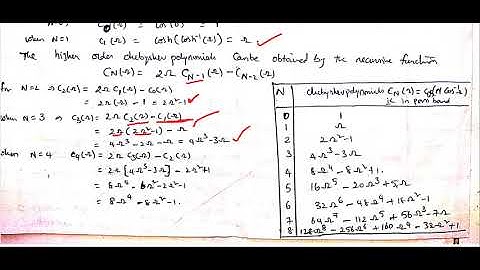 when N=1 C₁(Ω) = cosh(cosh⁻¹(Ω)) = Ω
The higher order chebyshev polynomials can be obtained by the recursive function
C_N(Ω) = 2Ω C_{N-1}(Ω) - C_{N-2}(Ω)
for N=2 ⇒ C₂(Ω) = 2Ω C₁(Ω) - C₀(Ω)
= 2Ω(Ω) - 1 = 2Ω²-1
when N = 3 ⇒ C₃(Ω) = 2Ω C₂(Ω) - C₁(Ω)
= 2Ω(2Ω²-1) - Ω
= 4Ω³-2Ω-Ω = 4Ω³-3Ω
when N=4 C₄(Ω) = 2Ω C₃(Ω) - C₂(Ω)
= 2Ω[4Ω³-3Ω] - 2Ω²+1
= 8Ω⁴ - 6Ω² - 2Ω² - 1
= 8Ω⁴ - 8Ω² - 1.
N chebyshev polynomials C_N(Ω) =
in pass band
0 1
1 Ω
2 2Ω²-1
3 4Ω³-3Ω
4 8Ω⁴ - 8Ω²+1.
5 16Ω⁵ - 20Ω³+5Ω
6 32Ω⁶ - 48Ω⁴ + 18Ω²-1
7 64Ω⁷ - 112Ω⁵ + 56Ω³-7Ω
8 128Ω⁸ - 256Ω⁶ + 160Ω⁴ - 32Ω²+1